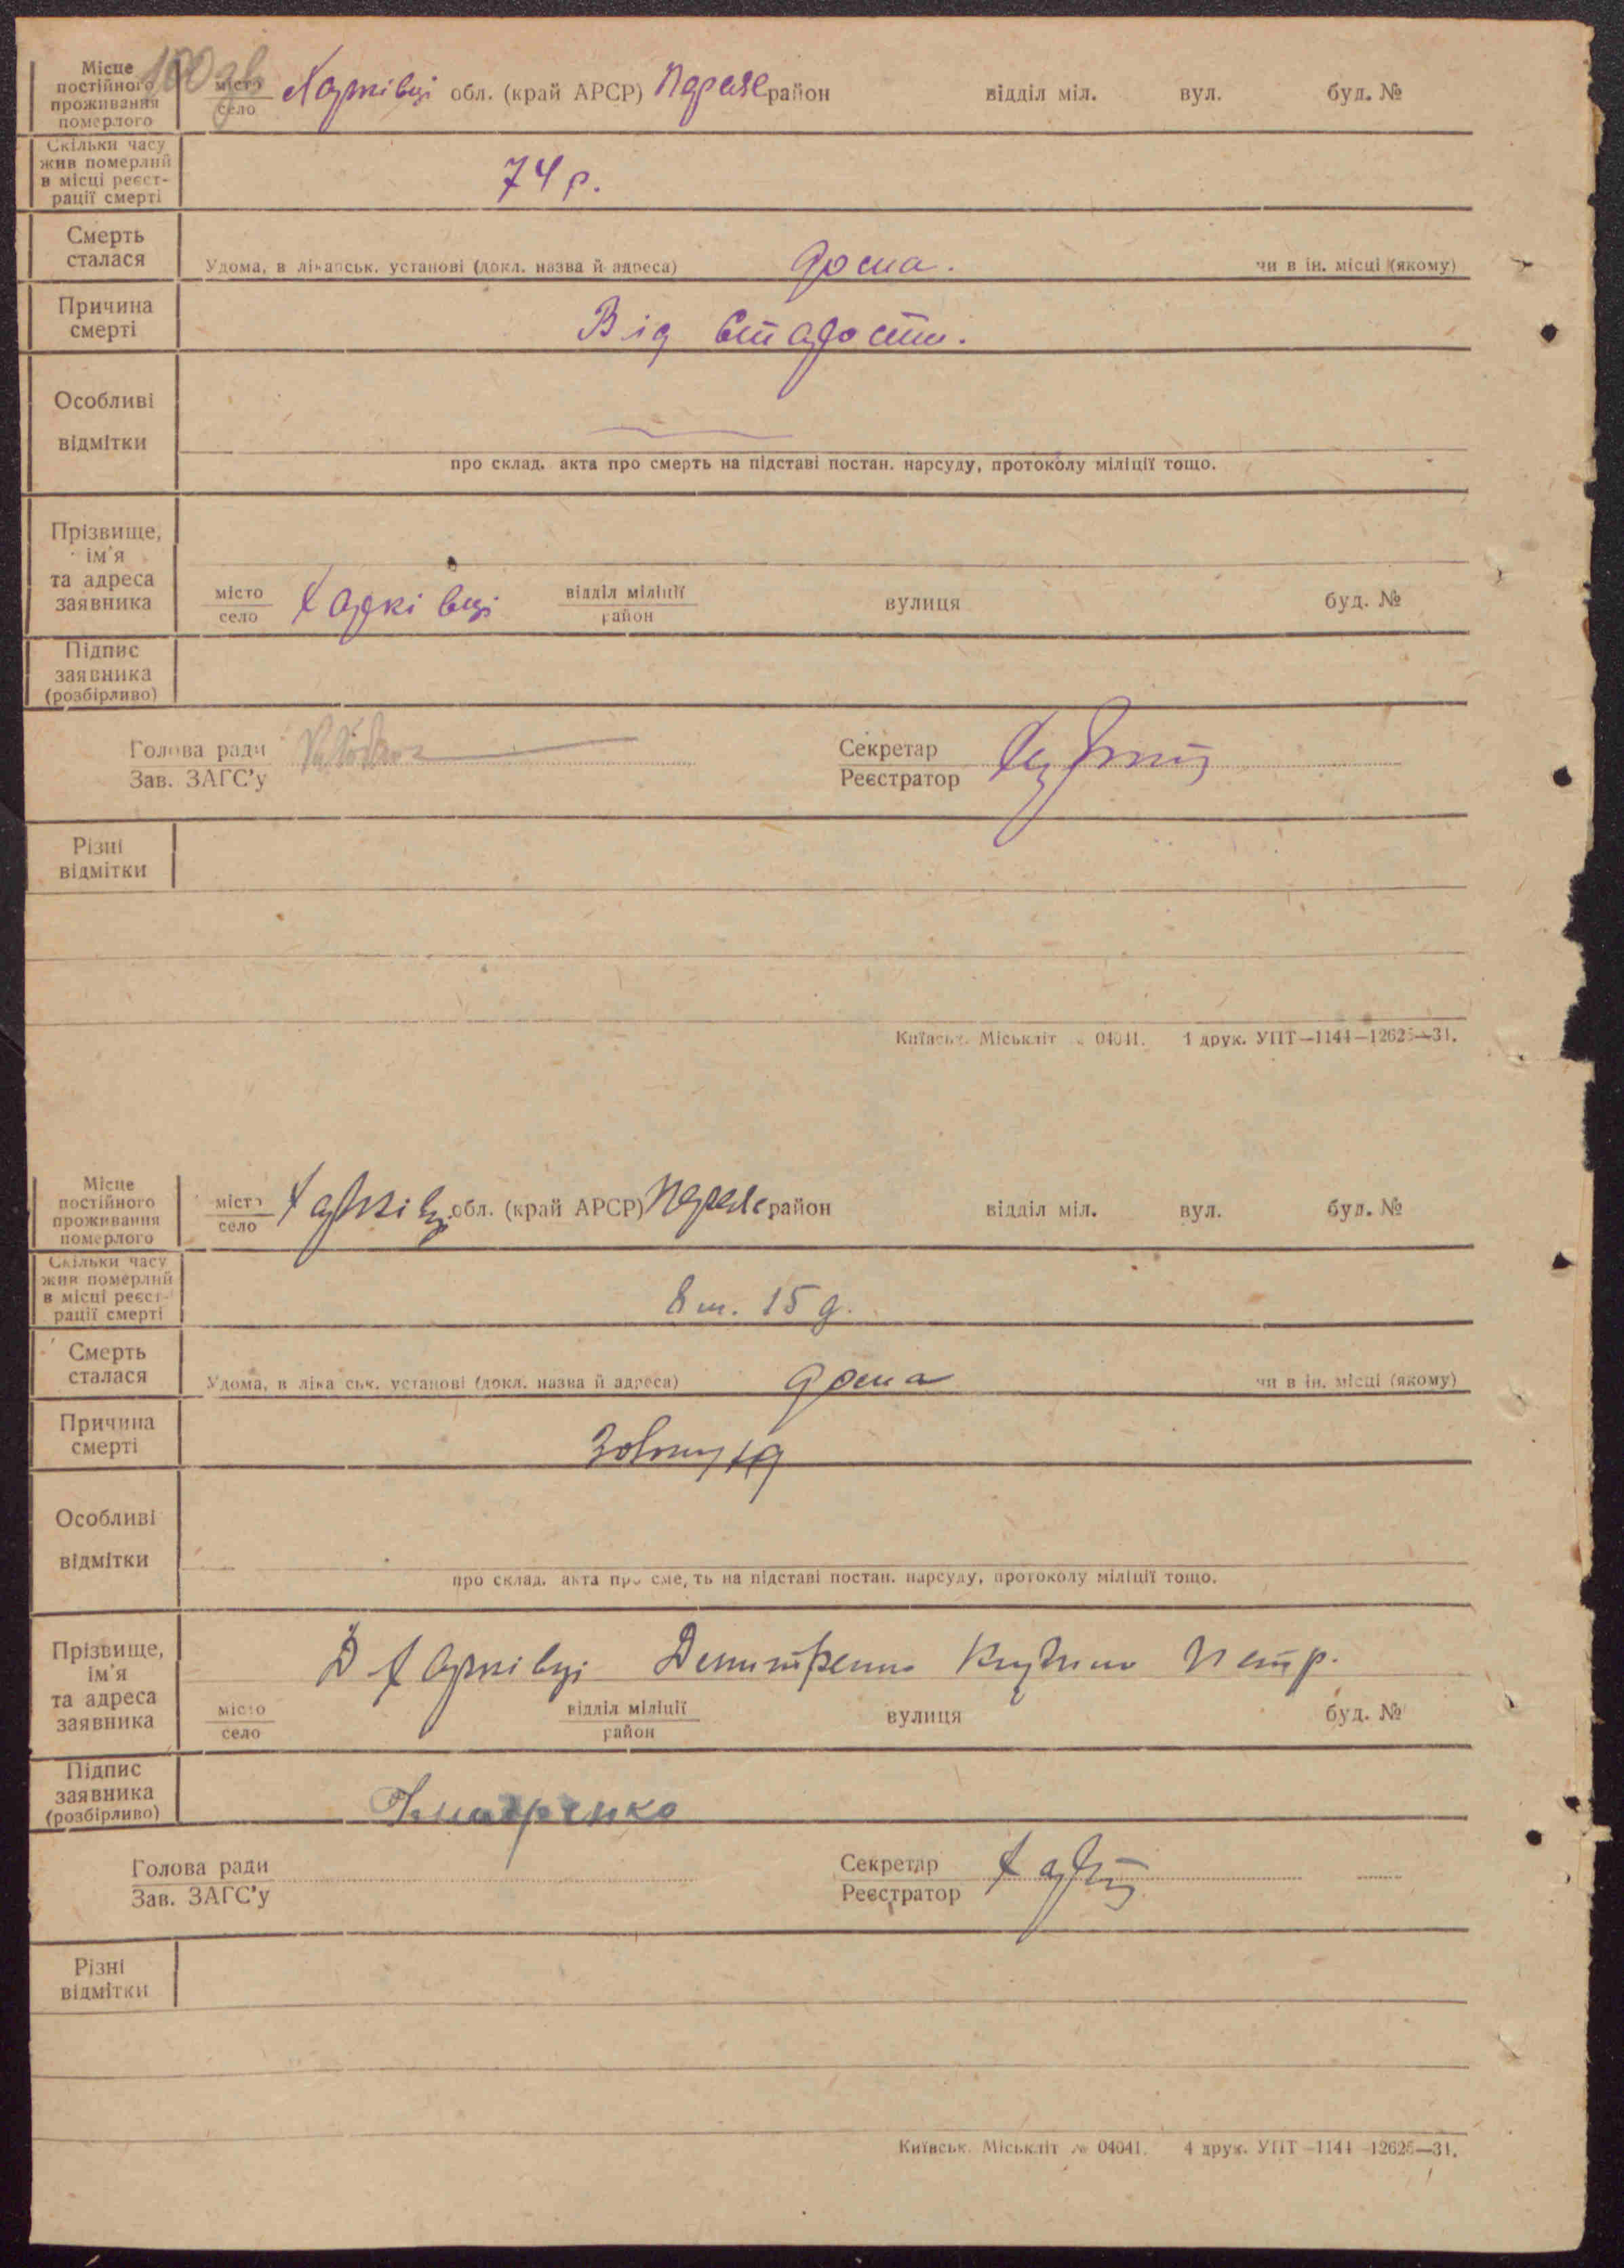 Місце
постійного
проживання
померлого
100 зв
місто
село
Харківці обл. (край АРСР) район відділ міл. вул. буд. №
Скільки часу
жив померлий
в місці реєст-
рації смерті
74 р.
Смерть
сталася
Удома, в лікарськ. установі (докл. назва й адреса) дома. чи в ін. місці (якому)
Причина
смерті
Від старости.
Особливі
відмітки
про склад. акта про смерть на підставі постан. нарсуду, протоколу міліції тощо.
Прізвище,
ім'я
та адреса
заявника
місто
село
Харківці
відділ міліції
район
вулиця буд. №
Підпис
заявника
(розбірливо)
Голова ради
Зав. ЗАГС'у
Секретар
Реєстратор
Різні
відмітки
Київськ. Міськліт № 04041. 4 друк. УПТ—1144—12625—31.
Місце
постійного
проживання
померлого
місто
село
Харківці обл. (край АРСР) район відділ міл. вул. буд. №
Скільки часу
жив померлий
в місці реєст-
рації смерті
8 м. 15 д.
Смерть
сталася
Удома, в лікарськ. установі (докл. назва й адреса) дома чи в ін. місці (якому)
Причина
смерті
Особливі
відмітки
про склад. акта про смерть на підставі постан. нарсуду, протоколу міліції тощо.
Прізвище,
ім'я
та адреса
заявника
Харківці Дмитренко Петр.
місто
село
відділ міліції
район
вулиця буд. №
Підпис
заявника
(розбірливо)
Голова ради
Зав. ЗАГС'у
Секретар
Реєстратор
Різні
відмітки
Київськ. Міськліт № 04041. 4 друк. УПТ—1144—12625—31.